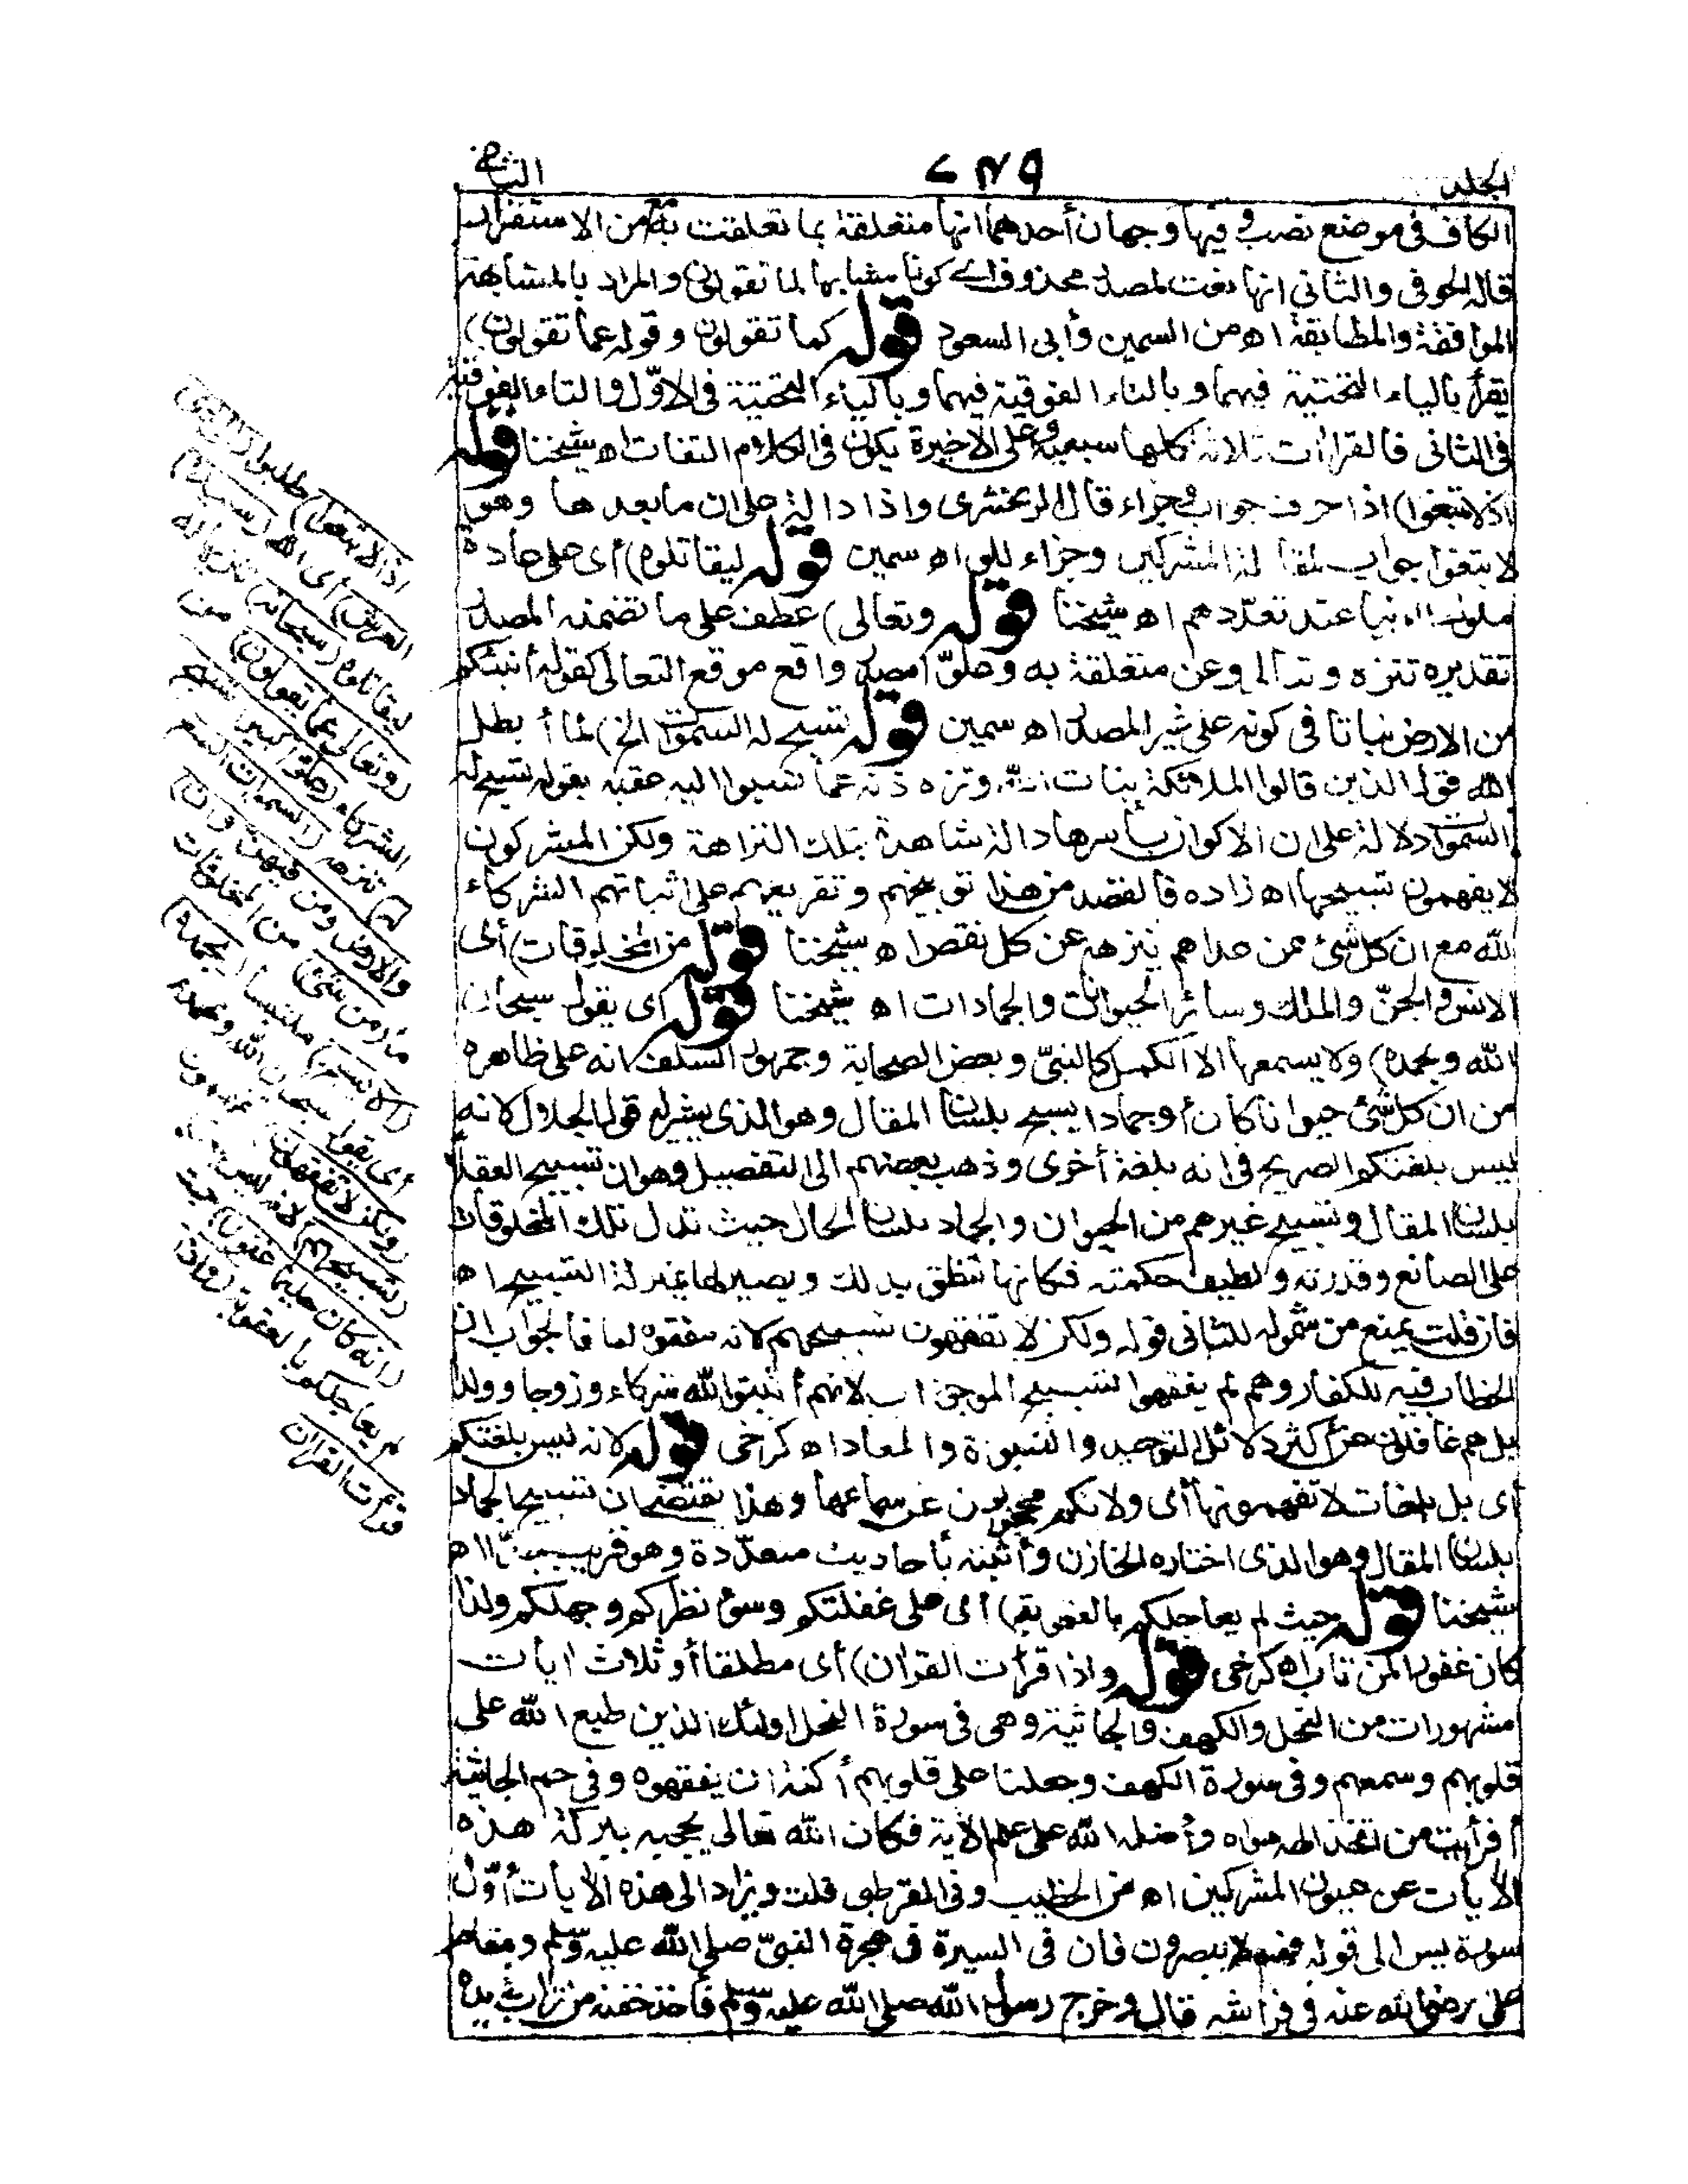 الجلد
٢٣٩
الثانى
الكاف فى موضع نصب و فيها وجهان أحدهما انها متعلقة بما تعلقت به مع من الاستقرار
قاله الحوفى والثانى انها نعت لمصدر محذوف اے كونا مشابها لما تقولون والمراد بالمشابهة
الموافقة والمطابقة اه من السمين وأبى السعود قوله كما تقولون وقوله عما تقولون)
يقرأ بالياء التحتية فيهما وبالتاء الفوقية فيهما وبالياء التحتية فى الاوّل والتاء الفوقية
فى الثانى فالقراآت ثلاثة كلها سبعية وعلى الاخيرة يكون فى الكلام التفات اه شيخنا قوله
اذا لابتغوا) اذا حرف جواب وجزاء قال الزمخشرى واذا دالة على ان ما بعدها وهو
لابتغوا جواب لمقالة المشركين وجزاء للو اه سمين قوله ليقاتلوه) أى على عادة
ملوك الدنيا عند تعدّدهم اه شيخنا قوله وتعالى) عطف على ما تضمنه المصدر
تقديره تنزه وتعالى وعن متعلقة به وعلوّا مصدر واقع موقع التعالى كقوله أنبتكم
من الارض نباتا فى كونه على غير المصدر اه سمين قوله تسبح له السموت الخ) لما أبطل
الله قول الذين قالوا الملائكة بنات الله ونزه ذاته عما نسبوا اليه عقبه بقوله تسبح له
السموات دلالة على ان الاكوان بأسرها دالة شاهدة بتلك النزاهة ولكن المشركون
لا يفهمون تسبيحها اه زاده فالقصد من هذا توبيخهم وتقريعهم على اثباتهم الشركاء
لله مع ان كل شئ ممن عداهم ينزهه عن كل نقص اه شيخنا قوله من المخلوقات) أى
الانس والجنّ والملك وسائر الحيوانات والجمادات اه شيخنا قوله أى يقول سبحان
الله وبحمده) ولا يسمعها الا الكمل كالنبىّ وبعض الصحابة وجمهور السلف انه على ظاهره
من ان كل شئ حيوانا كان أو جمادا يسبح بلسان المقال وهو الذى يشير له قول الجلال لانه
ليس بلغتكم الصريح فى انه بلغة أخرى وذهب بعضهم الى التفصيل وهو ان تسبيح العقلاء
بلسان المقال وتسبيح غيرهم من الحيوان والجماد بلسان الحال حيث تدل تلك المخلوقات
على الصانع وقدرته ولطيف حكمته فكانها تنطق بذلك ويصير لها بمنزلة التسبيح اه
فان قلت يمنع من شموله للثانى قوله ولكن لا تفقهون تسبيحهم لانه مفقوه لنا فالجواب ان
الخطاب فيه للكفار وهم لم يفقهوا تسبيح الموجودات لانهم أثبتوا لله شركاء وزوجا وولدا
بل هم غافلون عن أكثر دلائل التوحيد والنبوة والمعاد اه كرخى قوله لانه ليس بلغتكم
أى بل بلغات لا تفهمونها أى ولانكم محجوبون عن سماعها وهذا يقتضى ان تسبيح الجماد
بلسان المقال وهو الذى اختاره الخازن وأثبته بأحاديث متعدّدة وهو قريب جدّا اه
شيخنا قوله حيث لم يعاجلكم بالعقوبة) أى على غفلتكم وسوء نظركم وجهلكم ولذا
كان غفورا لمن تاب اه كرخى قوله واذا قرأت القران) أى مطلقا أو ثلاث ايات
مشهورات من النحل والكهف والجاثية وهى فى سورة النحل اولئك الذين طبع الله على
قلوبهم وسمعهم وفى سورة الكهف وجعلنا على قلوبهم أكنة ان يفقهوه وفى حم الجاثية
أفرأيت من اتخذ الهه هواه وأضله الله على علم الاية فكان الله تعالى يحجبه ببركة هذه
الأيات عن عيون المشركين اه من الخطيب وفى القرطبى قلت ويزاد الى هذه الأيات أوّل
سورة يس الى قوله فهم لا يبصرون فان فى السيرة فى هجرة النبىّ صلى الله عليه وسلم ومقام
على رضى الله عنه فى فراشه قال وخرج رسول الله صلى الله عليه وسلم فأخذ حفنة من تراب فى يده
اذا لابتغوا) طلبوا (الى ذى
العرش) أى الله (سبيلا)
ليقاتلوه (سبحانه) تنزيها له
(وتعالى عما يقولون) من
الشركاء (علوّا كبيرا تسبح
له) تنزهه (السموات السبع
والارض ومن فيهن وان)
ما (من شئ) من المخلوقات
(الا يسبح) ملتبسا (بحمده)
أى يقول سبحان الله وبحمده
(ولكن لا تفقهون) تفهمون
(تسبيحهم) لانه ليس بلغتكم
(انه كان حليما غفورا) حيث
لم يعاجلكم بالعقوبة (واذا
قرأت القران